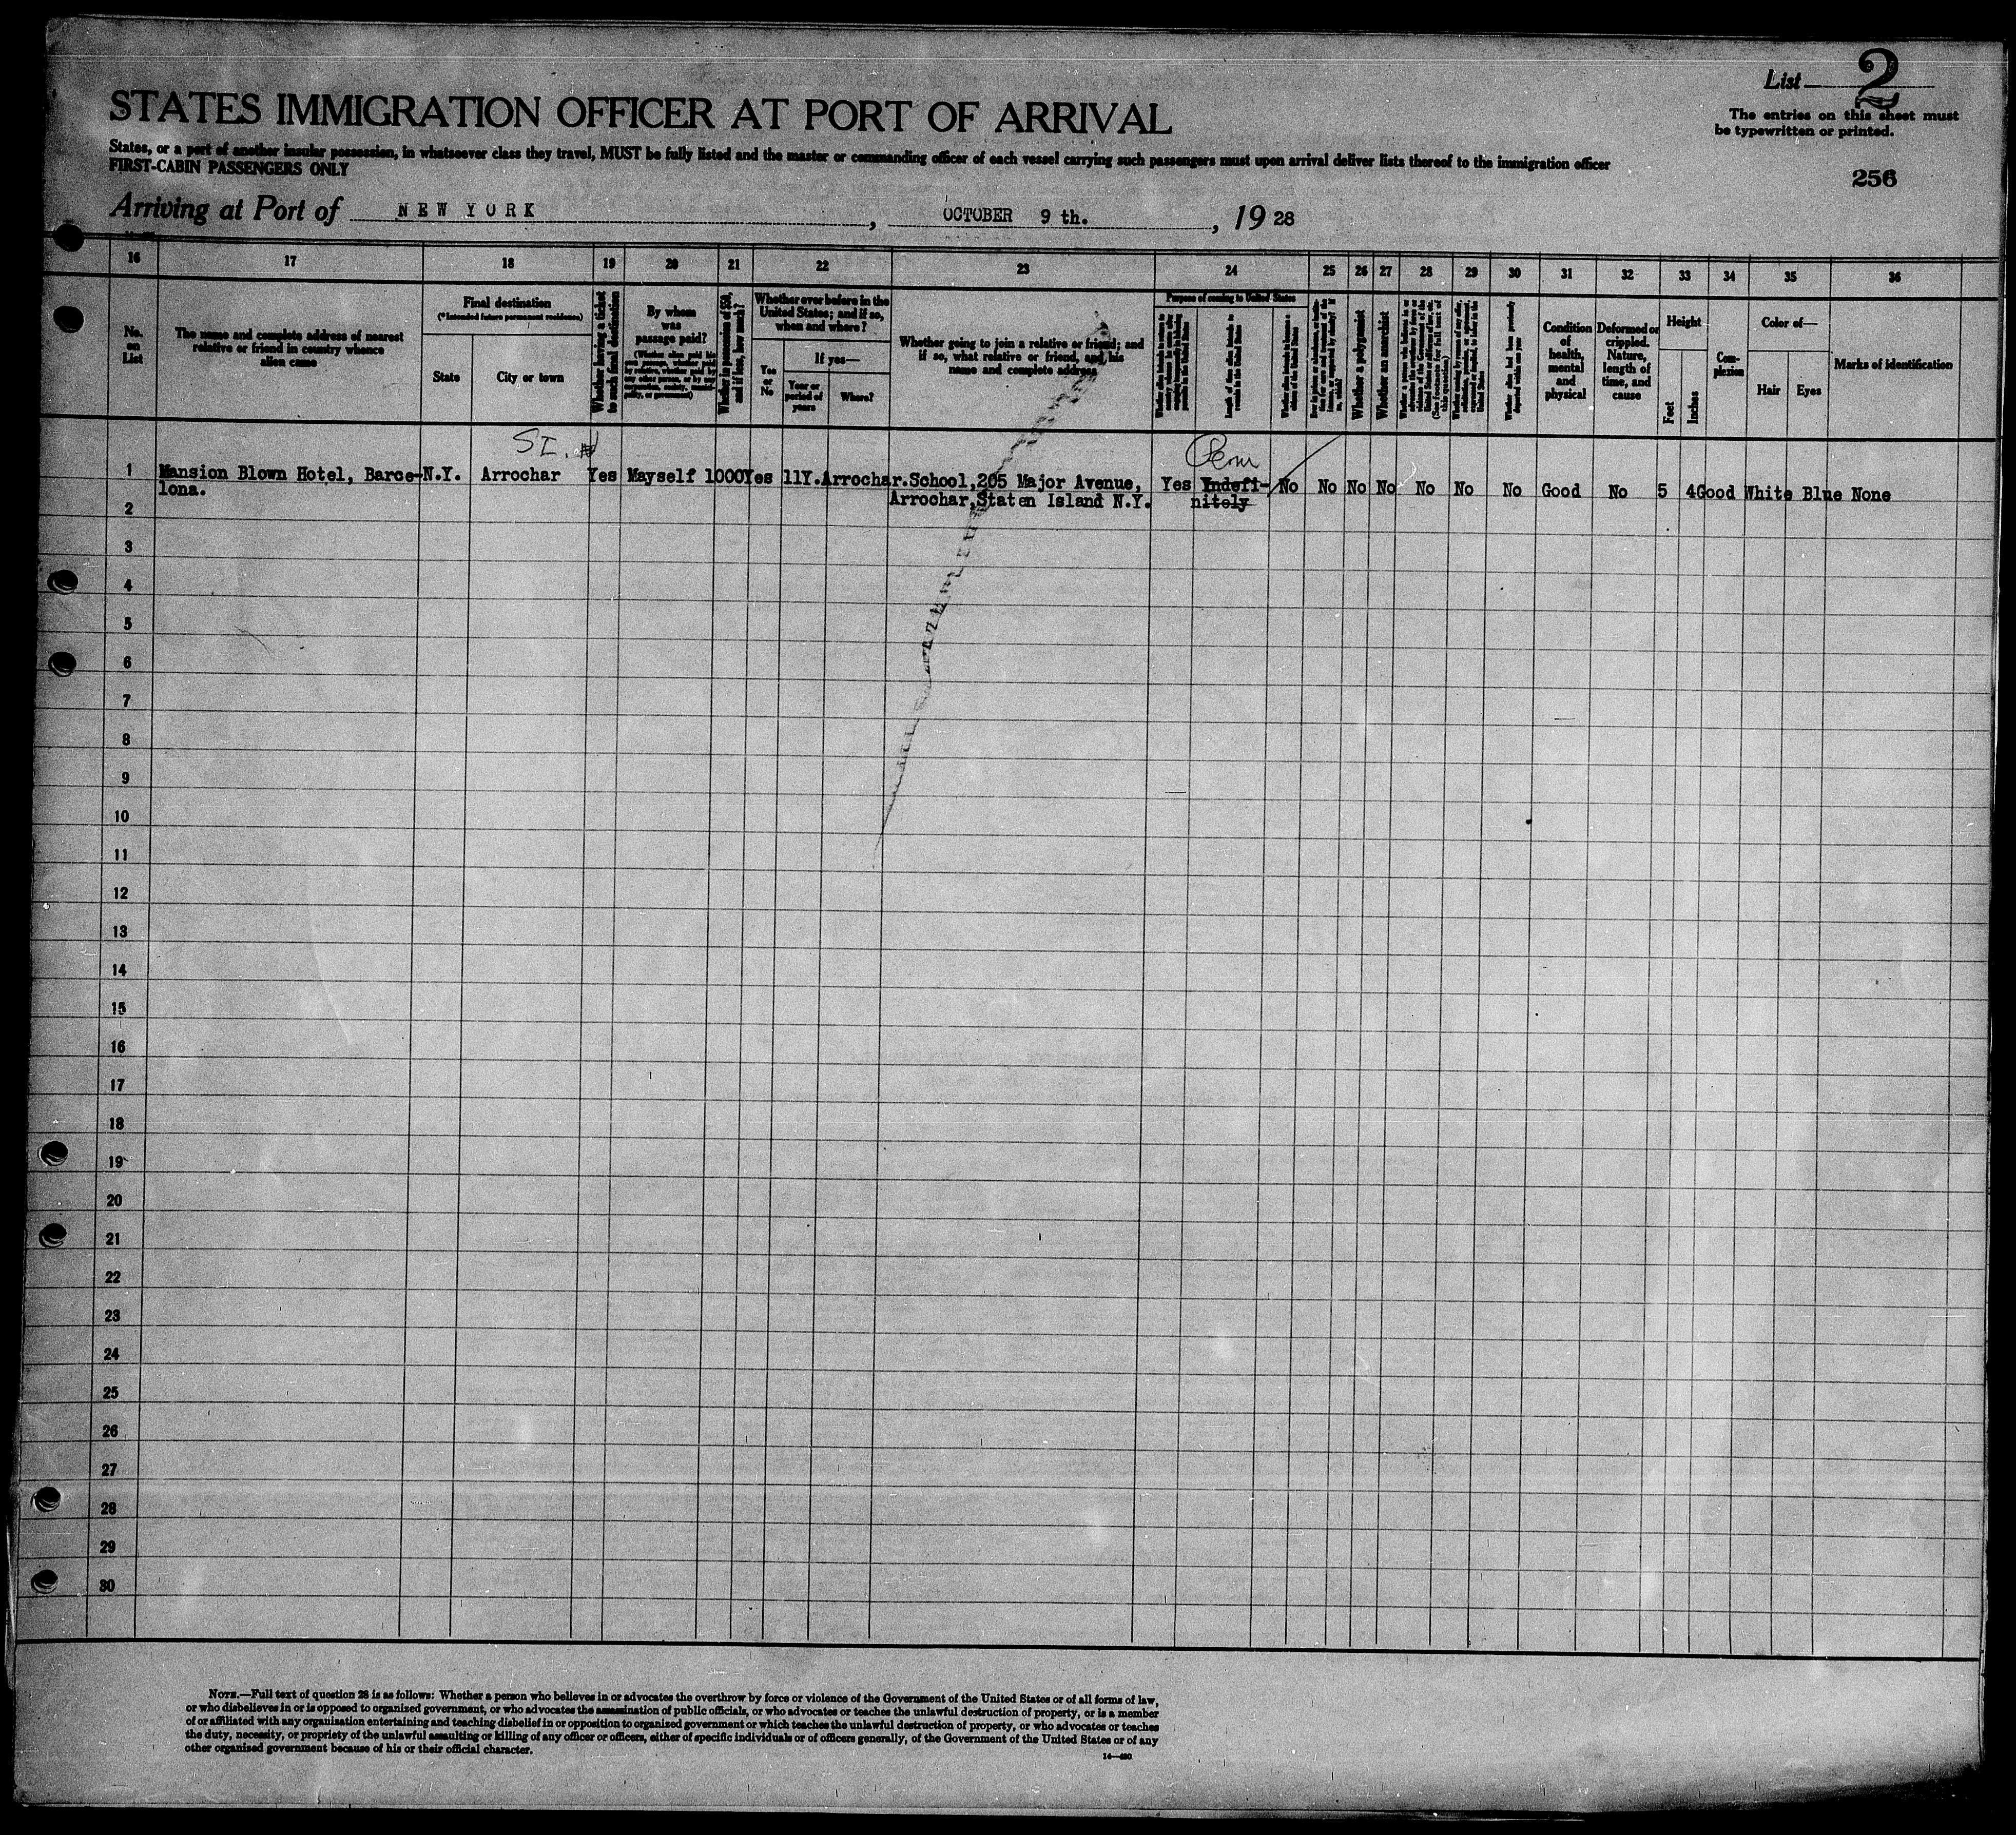 List 2
The entries on this sheet must
be typewritten or printed.
STATES IMMIGRATION OFFICER AT PORT OF ARRIVAL
States, or a port of another insular possession, in whatsoever class they travel, MUST be fully listed and the master or commanding officer of each vessel carrying such passengers must upon arrival deliver lists thereof to the immigration officer
FIRST-CABIN PASSENGERS ONLY
256
Arriving at Port of NEW YORK, OCTOBER 9 th., 19 28
16 17 18 19 20 21 22 23 24 25 26 27 28 29 30 31 32 33 34 35 36
No.
on
List
The name and complete address of nearest
relative or friend in country whence
alien came
Final destination
(*Intended future permanent residence)
State
City or town
Whether having a ticket
to such final destination
By whom
was
passage paid?
Whether in possession of $50,
and if less, how much?
Whether ever before in the
United States; and if so,
when and where?
Yes
or
No
If yes—
Year or
period of
years
Where?
Whether going to join a relative or friend; and
if so, what relative or friend, and his
name and complete address
Purpose of coming to United States
Length of time alien intends to
remain in the United States
Whether alien intends to become a
citizen of the United States
Whether a polygamist
Whether an anarchist
Condition
of
health,
mental
and
physical
Deformed or
crippled.
Nature,
length of
time, and
cause
Height
Feet
Inches
Com-
plexion
Color of—
Hair
Eyes
Marks of identification
S I.
Perm
1 Mansion Blown Hotel, Barce- N.Y. Arrochar Yes Mayself 1000 Yes 11Y. Arrochar. School, 205 Major Avenue, Yes Indefi- No No No No No No No Good No 5 4 Good White Blue None
lona. Arrochar, Staten Island N.Y. nitely
2
3
4
5
6
7
8
9
10
11
12
13
14
15
16
17
18
19
20
21
22
23
24
25
26
27
28
29
30
NOTE.—Full text of question 28 is as follows: Whether a person who believes in or advocates the overthrow by force or violence of the Government of the United States or of all forms of law,
or who disbelieves in or is opposed to organized government, or who advocates the assassination of public officials, or who advocates or teaches the unlawful destruction of property, or is a member
of or affiliated with any organization entertaining and teaching disbelief in or opposition to organized government or which teaches the unlawful destruction of property, or who advocates or teaches
the duty, necessity, or propriety of the unlawful assaulting or killing of any officer or officers, either of specific individuals or of officers generally, of the Government of the United States or of any
other organized government because of his or their official character.
14—480